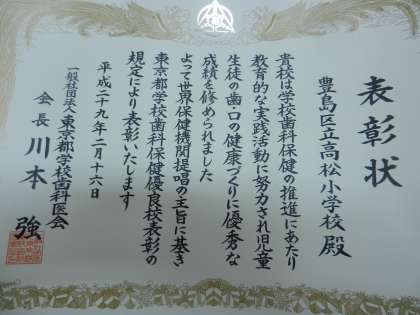 表彰状
豊島区立高松小学校 殿
貴校は学校歯科保健の推進にあたり
教育的な実践活動に努力され児童
生徒の歯・口の健康づくりに優秀な
成績を修められました
よって世界保健機関提唱の主旨に基き
東京都学校歯科保健優良校表彰の
規定により表彰いたします
平成二十九年二月十六日
一般社団法人東京都学校歯科医会
会長 川本 強